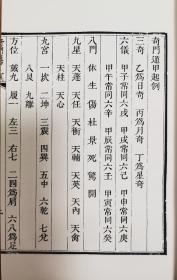 奇門遁甲起例
三奇 乙為日奇 丙為月奇 丁為星奇
六儀 甲子常同六戊 甲戌常同六己 甲申常同六庚
甲午常同六辛 甲辰常同六壬 甲寅常同六癸
八門 休生傷杜景死驚開
九星 天蓬 天任 天衝 天輔 天英 天內 天禽
天柱 天心
九宮 一坎 二坤 三震 四巽 五中 六乾 七兌
八艮 九離
方位 戴九 履一 左三 右七 二四為肩 六八為足